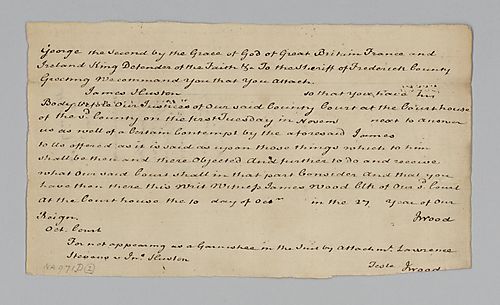 George the Second by the Grace of God of Great Britain France and
Ireland King Defender of the Faith &c To the Sheriff of Frederick County
Greeting We command You that You Attach
James Huston so that You have his
Body before Our Justices of Our said County Court at the Courthouse
of the sd County on the first Tuesday in Novem next to answer
us as well of a Certain Contempt by the aforesaid James
to us offered as it is said as upon those things which to him
shall be then and there Objected And further to do and receive
what Our said Court shall in that part Consider And that you
have then there this Writ Witness James Wood Clk of Our sd Court
At the Courthouse the 10 day of Octr in the 27 Year of Our
Reign. JWood
Oct. Court
For not appearing as a Garnishee in the Suit by Attachmt Lawrence
Stevens v Jno Huston
Teste JWood
NA 971D (2)